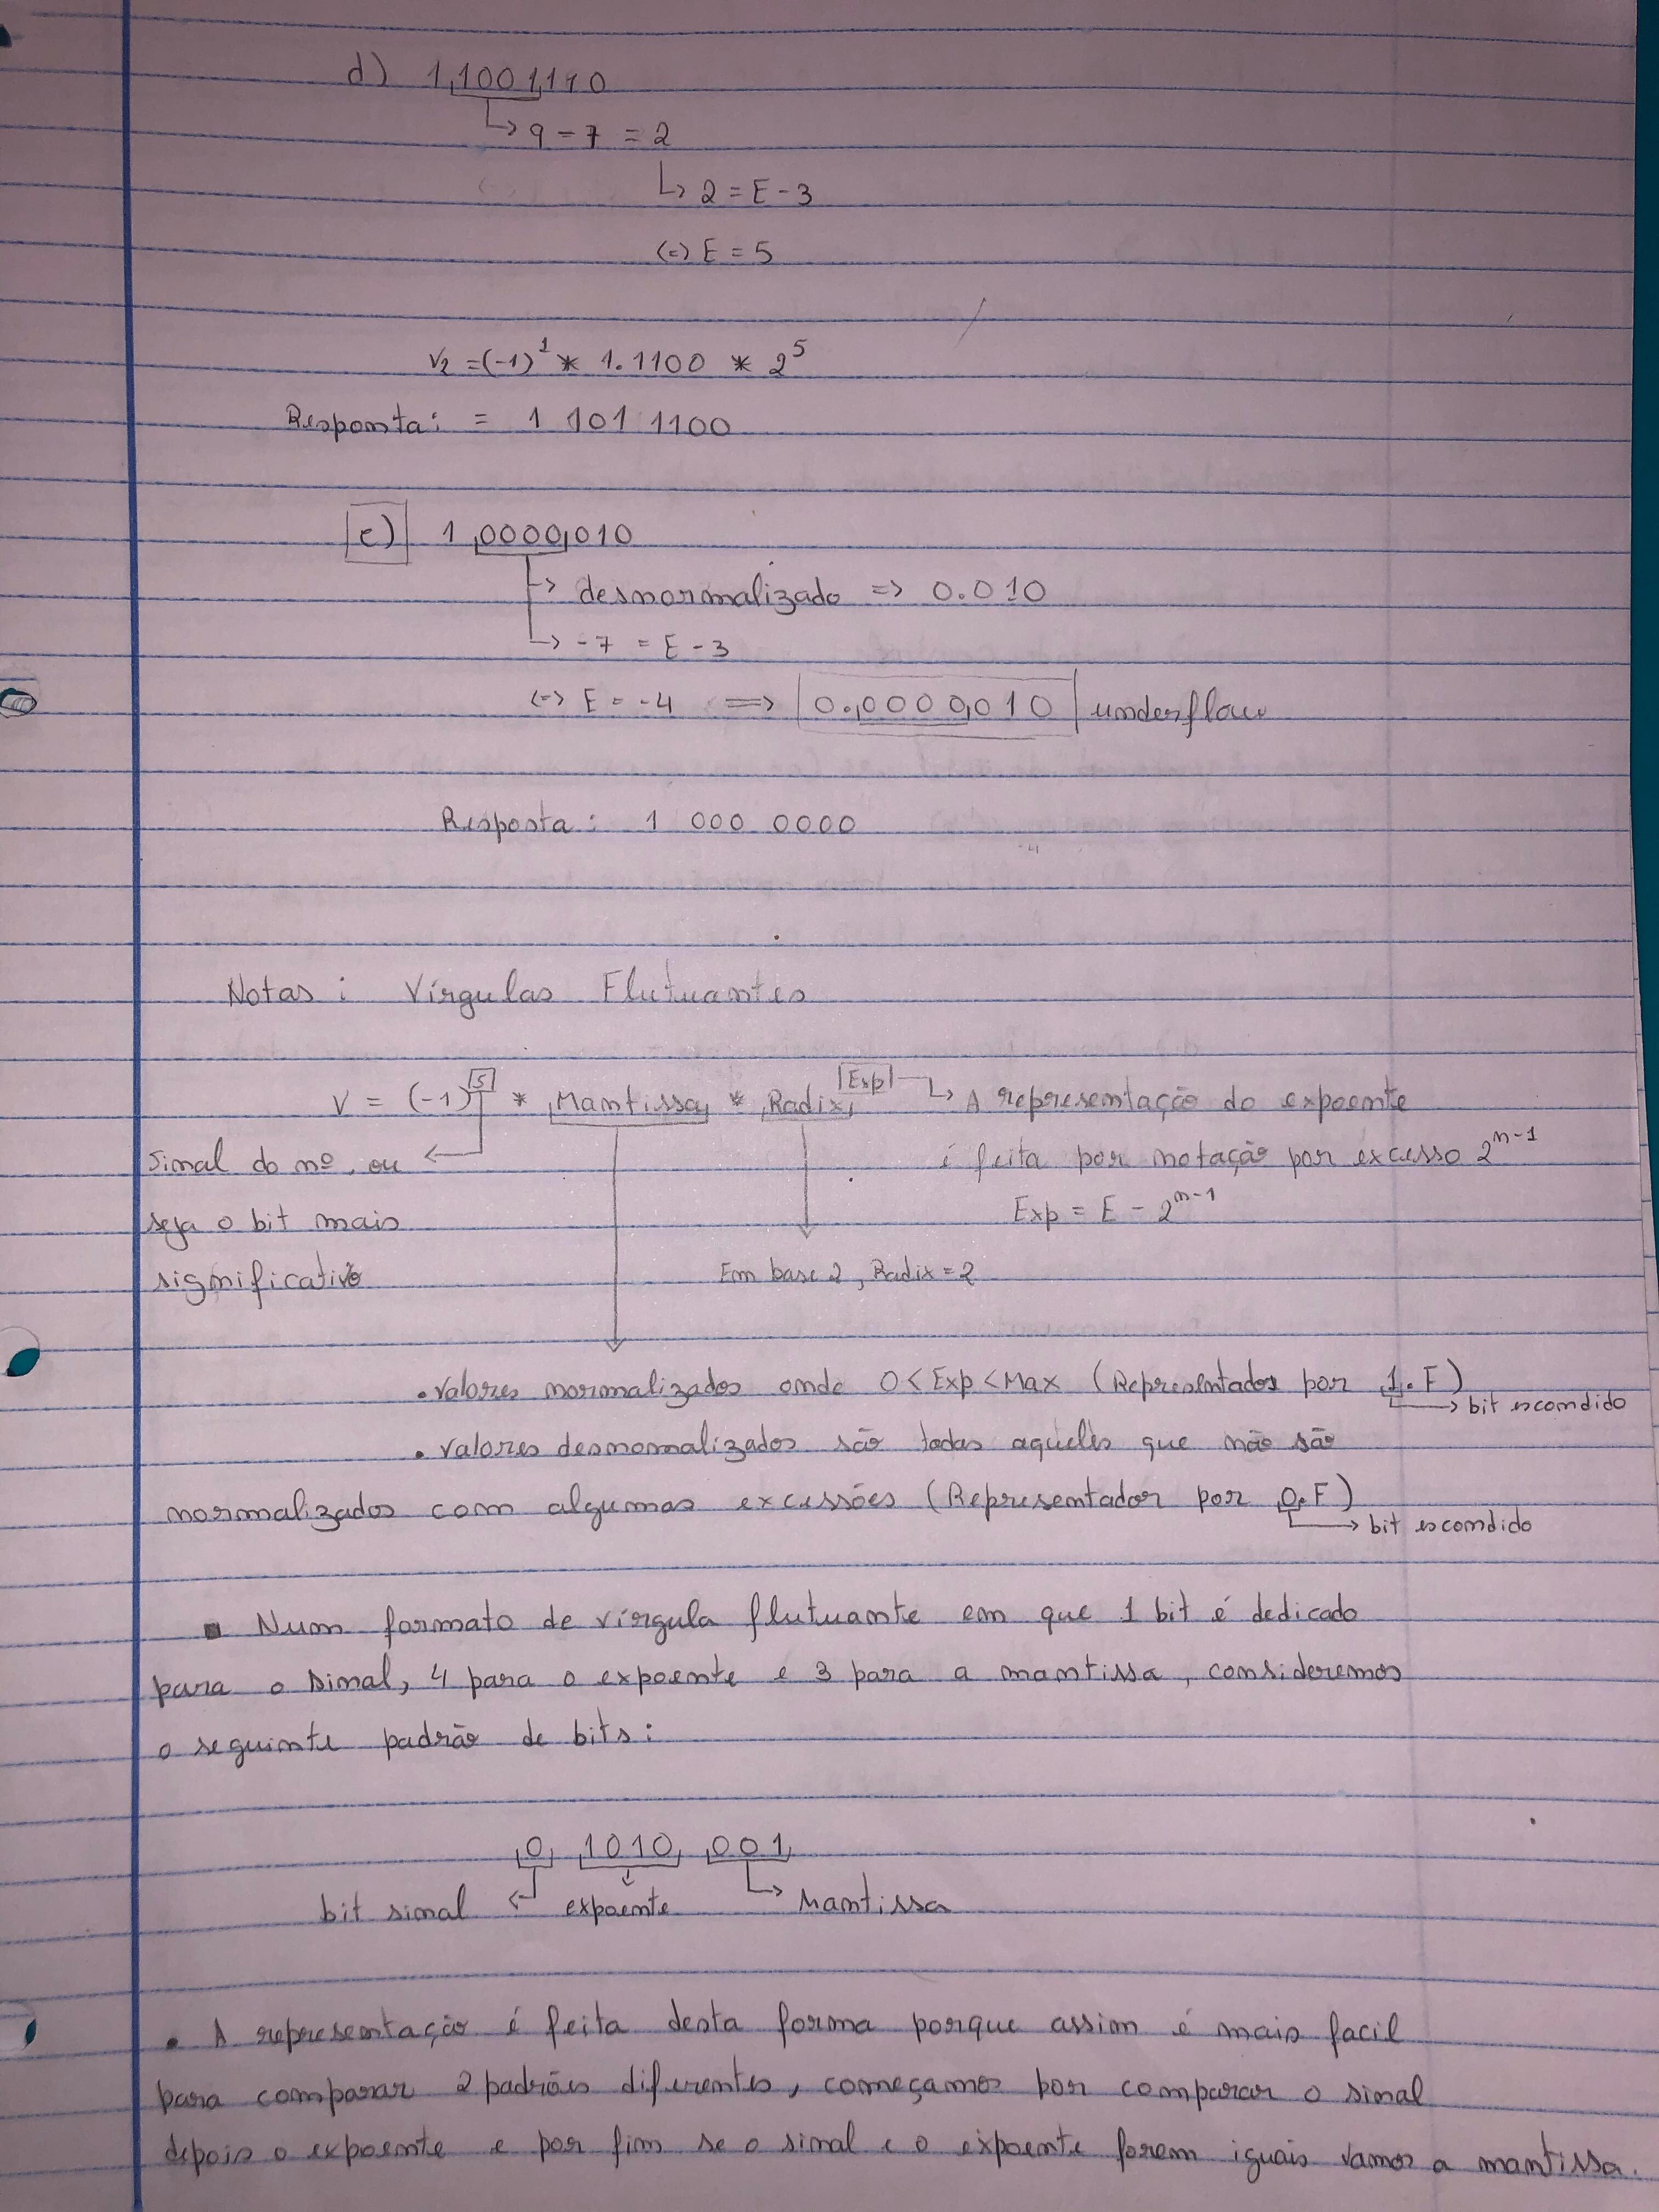 d) 1,1001,110
↳ 9 - 7 = 2
↳ 2 = E - 3
(=) E = 5
V2 = (-1)^1 * 1.1100 * 2^5
Resposta: = 1 101 1100
e) 1,0000,010
→ desnormalizado => 0.010
↳ -7 = E - 3
<=> E = -4 => 0.,0000,010 underflow
Resposta: 1 000 0000
Notas: Vírgulas Flutuantes
V = (-1)^S * Mantissa * Radix^Exp ↳ A representação do expoente
Sinal do nº, ou é feita por notação por excesso 2^n-1
seja o bit mais Exp = E - 2^n-1
significativo Em base 2, Radix = 2
• Valores normalizados onde 0 < Exp < Max (Representados por 1.F)
→ bit escondido
• Valores desnormalizados são todas aqueles que não são
normalizados com algumas excessões (Representador por 0.F)
→ bit escondido
▪ Num formato de vírgula flutuante em que 1 bit é dedicado
para o sinal, 4 para o expoente e 3 para a mantissa, consideremos
o seguinte padrão de bits:
0 1010 001
bit sinal ← expoente ↳ Mantissa
• A representação é feita desta forma porque assim é mais facil
para comparar 2 padrões diferentes, começamos por comparar o sinal
depois o expoente e por fim se o sinal e o expoente forem iguais vamos a mantissa.